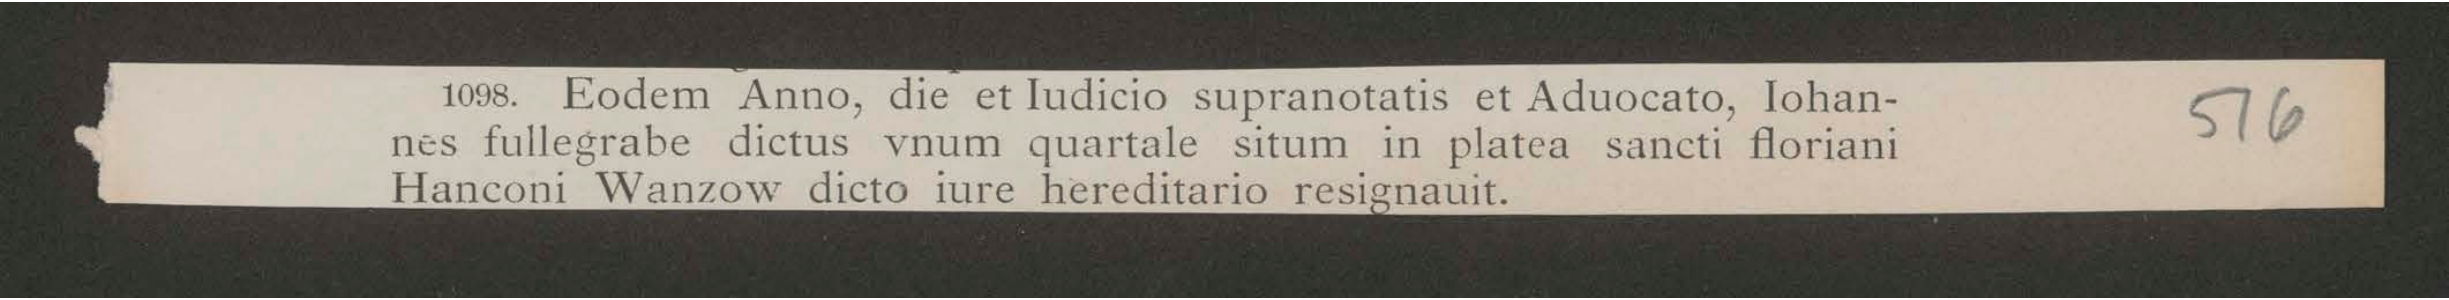 1098. Eodem Anno, die et Iudicio supranotatis et Aduocato, Iohan-
nes fullegrabe dictus vnum quartale situm in platea sancti floriani
Hanconi Wanzow dicto iure hereditario resignauit.
576